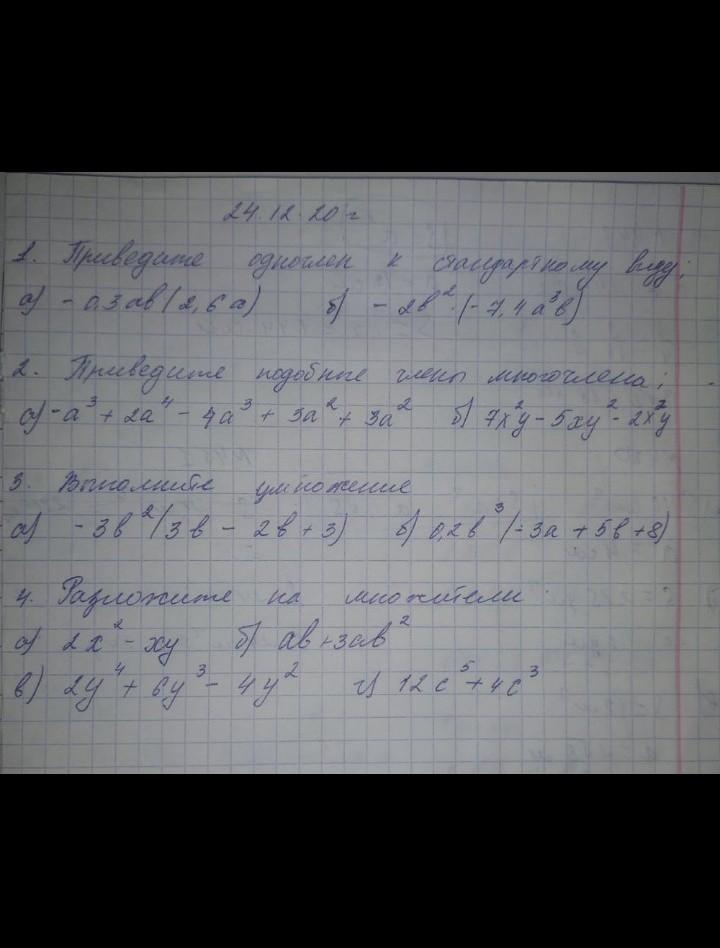 24.12.20 г
1. Приведите одночлен к стандартному виду;
а) -0,3ab(2,6a) б) -2b²·(-7,4a³b)
2. Приведите подобные члены многочлена;
а) -a³ + 2a⁴ - 4a³ + 3a² + 3a² б) 7x²y - 5xy² - 2x²y²
3. Выполните умножение
а) -3b²(3b - 2b + 3) б) 0,2b³(-3a + 5b + 8)
4. Разложите на множители
а) 2x² - xy б) ab + 3ab²
в) 2y⁴ + 6y³ - 4y² г) 12c⁵ + 4c³